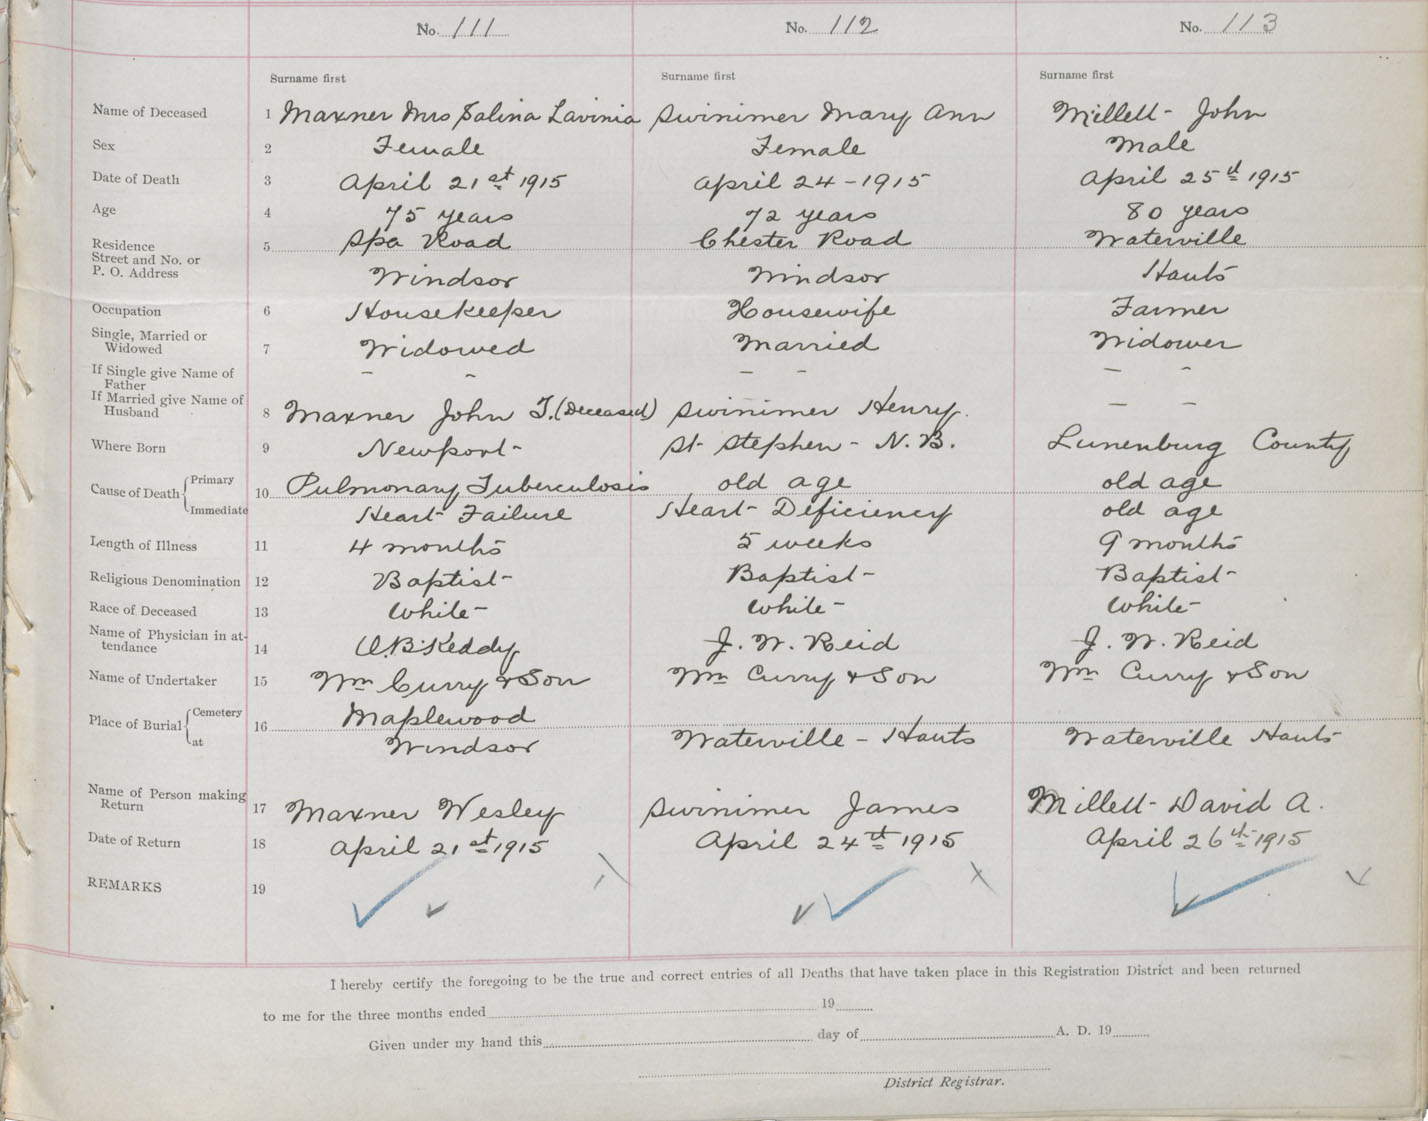 No. 111 No. 112 No. 113
Surname first Surname first Surname first
Name of Deceased 1 Maxner Mrs Salina Lavinia Swinimer Mary Ann Millett John
Sex 2 Female Female Male
Date of Death 3 April 21st 1915 April 24-1915 April 25th 1915
Age 4 75 years 72 years 80 years
Residence 5 Spa Road Chester Road Waterville
Street and No. or
P. O. Address Windsor Windsor Hants
Occupation 6 Housekeeper Housewife Farmer
Single, Married or
Widowed 7 Widowed Married Widower
If Single give Name of – – – – – –
Father
If Married give Name of
Husband 8 Maxner John T. (Deceased) Swinimer Henry. – –
Where Born 9 Newport St Stephen - N. B. Lunenburg County
Cause of Death { Primary 10 Pulmonary Tuberculosis old age old age
Immediate Heart Failure Heart Deficiency old age
Length of Illness 11 4 months 5 weeks 9 months
Religious Denomination 12 Baptist Baptist Baptist
Race of Deceased 13 White White White
Name of Physician in at-
tendance 14 O.B. Keddy J. W. Reid J. W. Reid
Name of Undertaker 15 Wm Curry & Son Wm Curry & Son Wm Curry & Son
Place of Burial { Cemetery 16 Maplewood
at Windsor Waterville - Hants Waterville Hants
Name of Person making
Return 17 Maxner Wesley Swinimer James Millett David A.
Date of Return 18 April 21st 1915 April 24th 1915 April 26th 1915
REMARKS 19
I hereby certify the foregoing to be the true and correct entries of all Deaths that have taken place in this Registration District and been returned
to me for the three months ended 19
Given under my hand this day of A. D. 19
District Registrar.